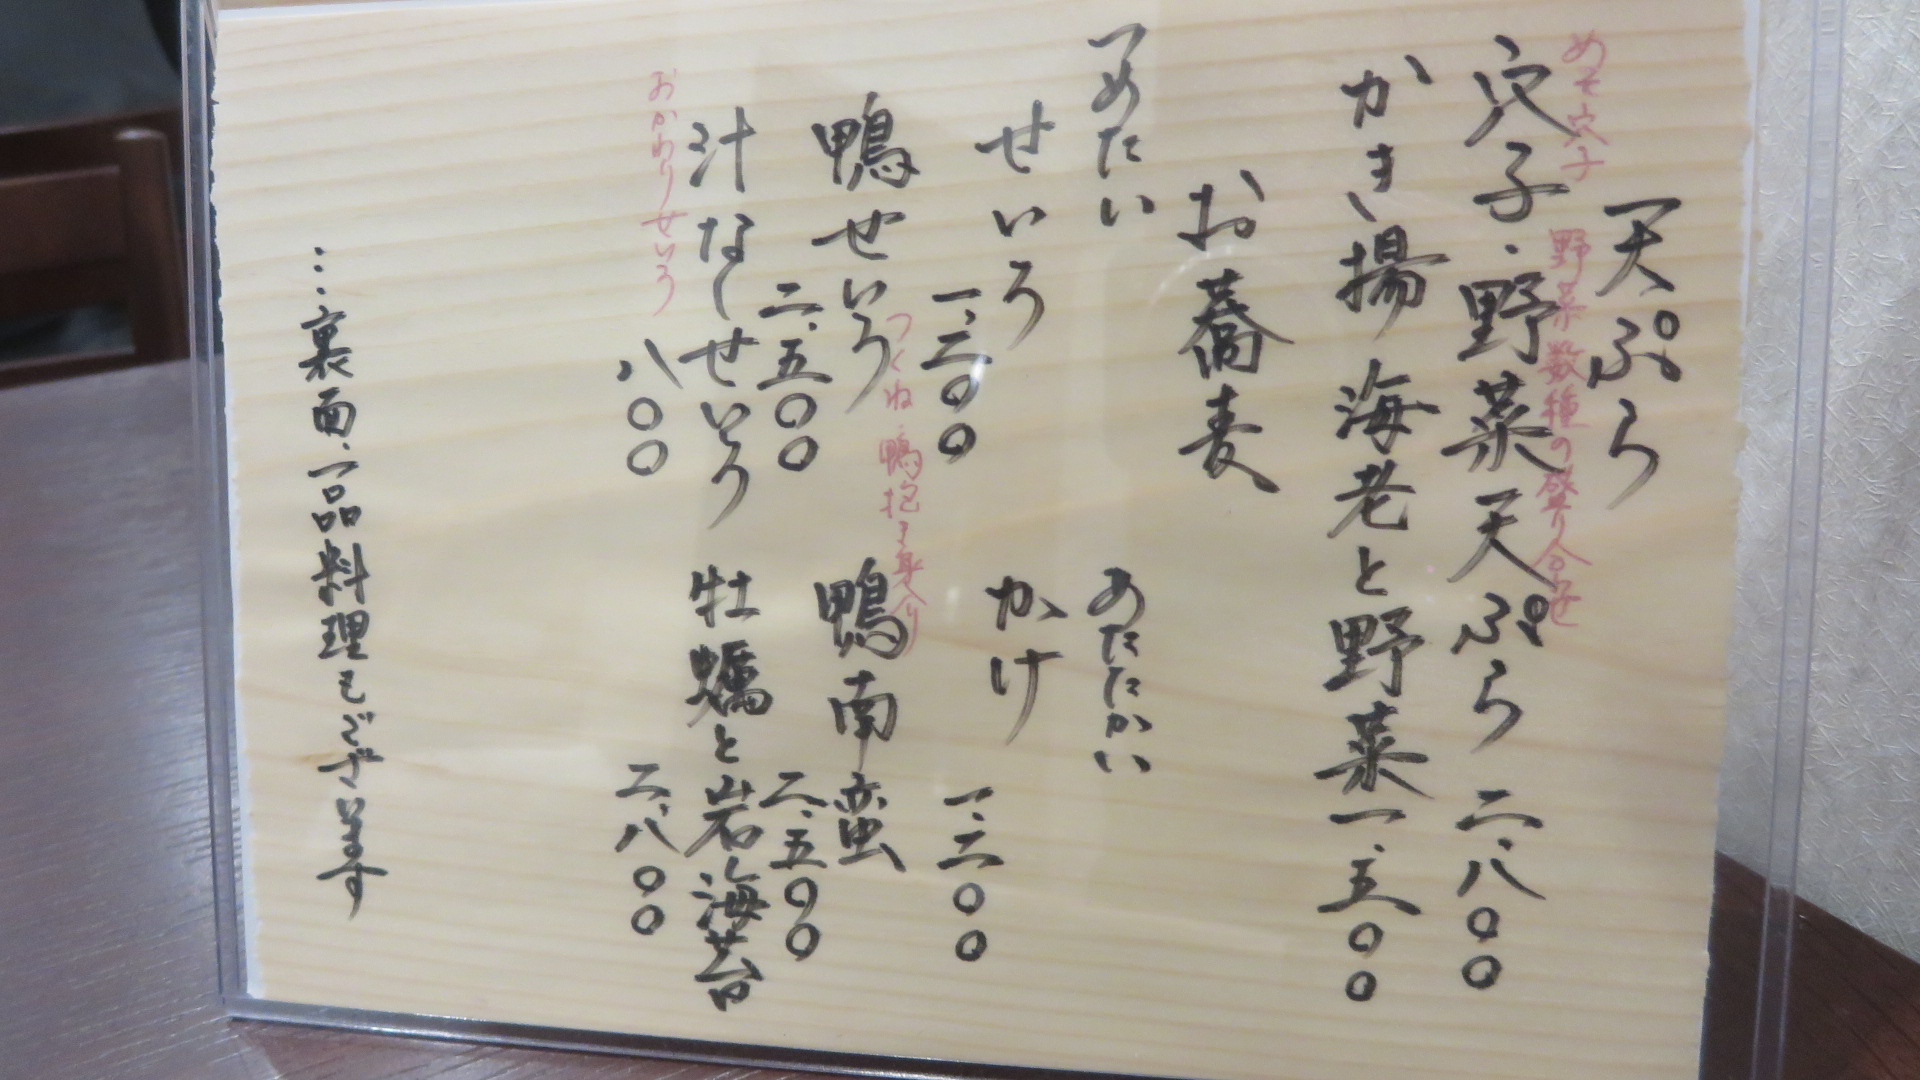 天ぷら
めそ穴子
野菜数種の盛り合せ
穴子・野菜天ぷら 二、八〇〇
かき揚 海老と野菜 一、五〇〇
お蕎麦
つめたい
せいろ
一、三〇〇
つくね、鴨抱き身入り
鴨せいろ
二、五〇〇
汁なしせいろ
おかわりせいろ
八〇〇
あたたかい
かけ
一、三〇〇
鴨南蛮
二、五〇〇
牡蠣と岩海苔
二、八〇〇
…裏面、一品料理もございます